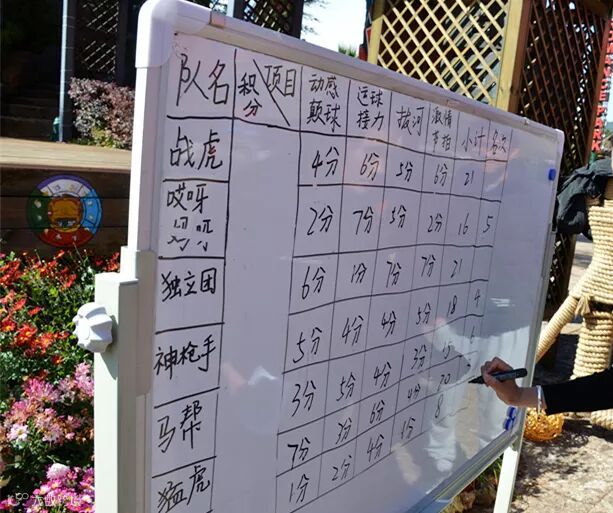 队名 积分 项目 动感颠球 运球接力 拔河 激情节拍 小计 名次
战虎 4分 6分 5分 6分 21
哎呀妈呀 2分 7分 5分 2分 16 5
独立团 6分 1分 7分 7分 21
神枪手 5分 4分 4分 5分 18 4
马帮 3分 5分 4分 3分 15 6
猛虎 7分 3分 6分 4分 20
1分 2分 4分 1分 8